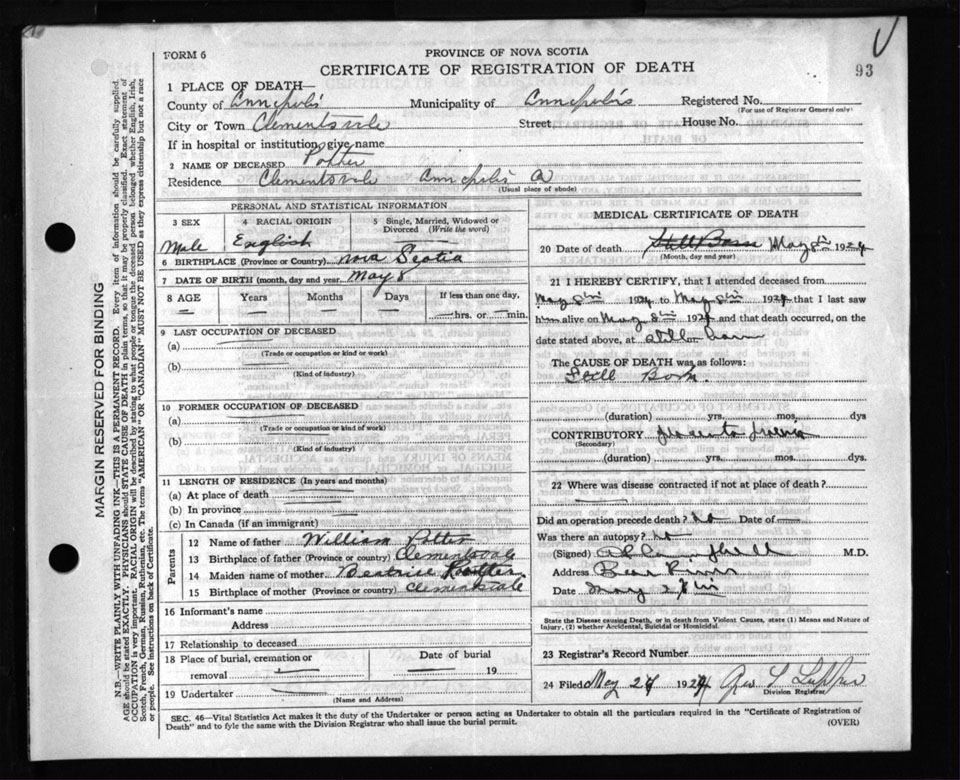 FORM 6
PROVINCE OF NOVA SCOTIA
CERTIFICATE OF REGISTRATION OF DEATH
93
1 PLACE OF DEATH—
County of Annapolis Municipality of Annapolis Registered No.
(For use of Registrar General only)
City or Town Clementsvale Street House No.
If in hospital or institution, give name
2 NAME OF DECEASED Potter
Residence Clementsvale Annapolis
(Usual place of abode)
PERSONAL AND STATISTICAL INFORMATION
3 SEX 4 RACIAL ORIGIN 5 Single, Married, Widowed or Divorced (Write the word)
Male English
6 BIRTHPLACE (Province or Country) Nova Scotia
7 DATE OF BIRTH (month, day and year) May 8
8 AGE Years Months Days If less than one day.
hrs. or min.
9 LAST OCCUPATION OF DECEASED
(a)
(Trade or occupation or kind or work)
(b)
(Kind of industry)
10 FORMER OCCUPATION OF DECEASED
(a)
(Trade or occupation or kind or work)
(b)
(Kind of industry)
11 LENGTH OF RESIDENCE (In years and months)
(a) At place of death
(b) In province
(c) In Canada (if an immigrant)
Parents
12 Name of father William Potter
13 Birthplace of father (Province or country) Clementsvale
14 Maiden name of mother Beatrice Potter
15 Birthplace of mother (Province or country) Clementsvale
16 Informant's name
Address
17 Relationship to deceased
18 Place of burial, cremation or removal Date of burial 19
19 Undertaker
(Name and Address)
MEDICAL CERTIFICATE OF DEATH
20 Date of death Still Born May 8th 1924
(Month, day and year)
21 I HEREBY CERTIFY, that I attended deceased from
May 8th 1924 to May 8th 1924 that I last saw
him alive on May 8th 1924 and that death occurred, on the
date stated above, at still born
The CAUSE OF DEATH was as follows:
Still Born.
(duration) yrs. mos. dys
CONTRIBUTORY
(Secondary)
(duration) yrs. mos. dys
22 Where was disease contracted if not at place of death?
Did an operation precede death? No Date of
Was there an autopsy? No
(Signed) M.D.
Address Bear River
Date May
State the Disease causing Death, or in death from Violent Causes, state (1) Means and Nature of Injury, (2) whether Accidental, Suicidal or Homicidal.
23 Registrar's Record Number
24 Filed May 1924 Geo
Division Registrar
SEC. 46—Vital Statistics Act makes it the duty of the Undertaker or person acting as Undertaker to obtain all the particulars required in the "Certificate of Registration of
Death" and to fyle the same with the Division Registrar who shall issue the burial permit.
(OVER)
MARGIN RESERVED FOR BINDING
N.B.—WRITE PLAINLY WITH UNFADING INK—THIS IS A PERMANENT RECORD. Every item of Information should be carefully supplied.
AGE should be stated EXACTLY. PHYSICIANS should STATE CAUSE OF DEATH in plain terms, so that it may be properly classified. Exact statement of
OCCUPATION is very important. RACIAL ORIGIN will be described by stating to what people or tongue the deceased person belonged whether English, Irish,
Scotch, French, German, Russian, Ruthenian, etc. The terms "AMERICAN" OR "CANADIAN" MUST NOT BE USED as they express citizenship but not a race
or people. See instructions on back of Certificate.